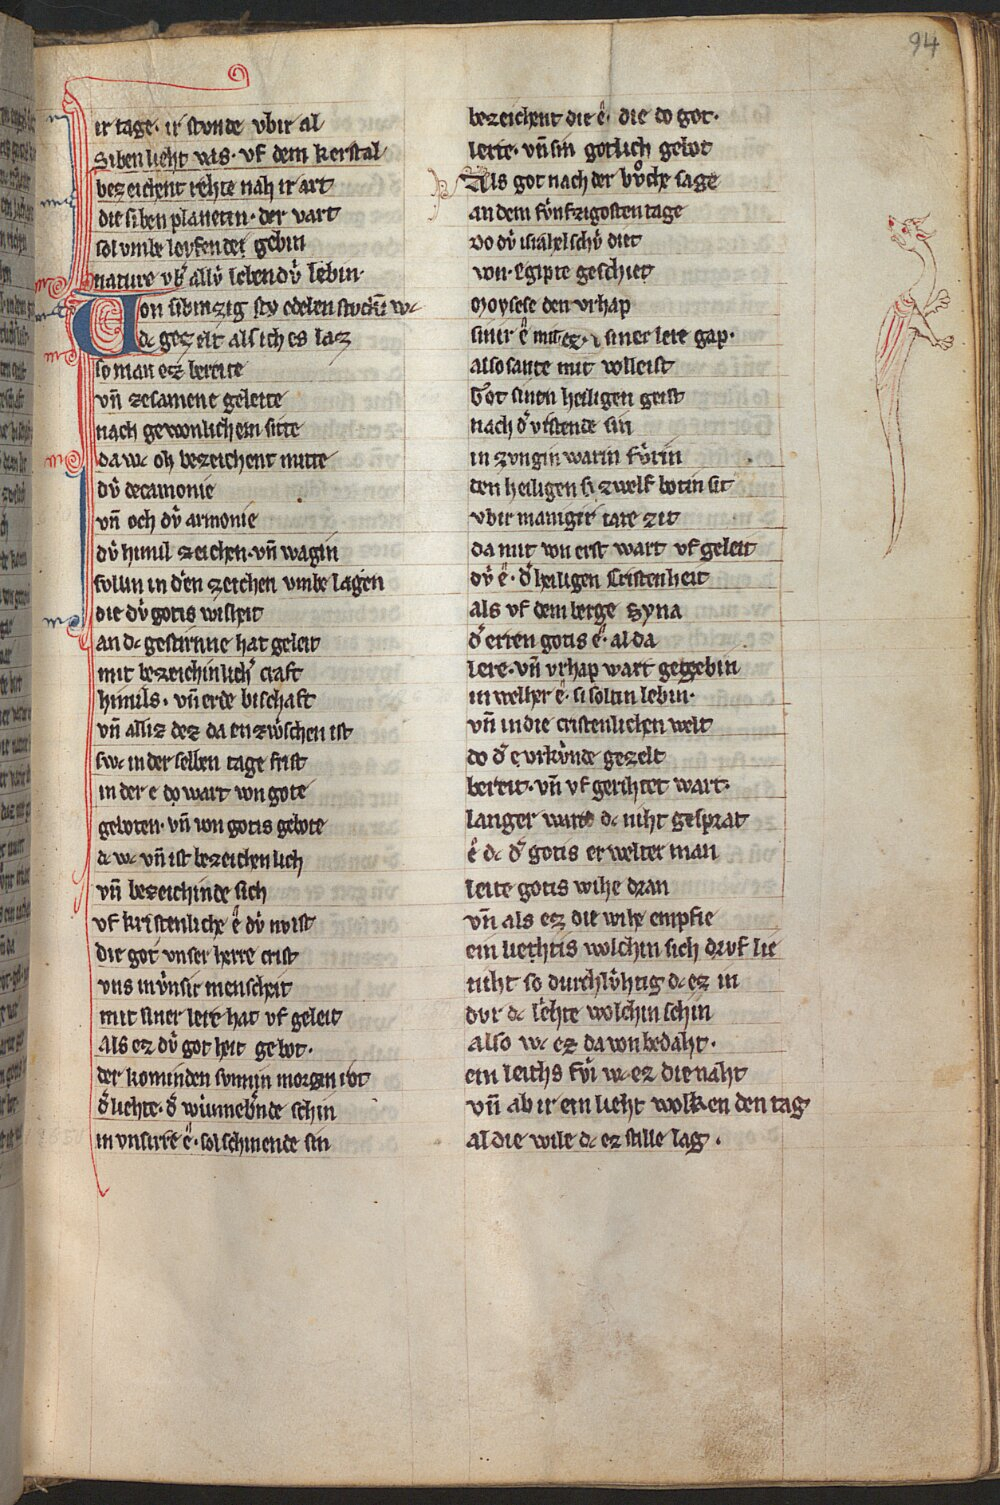 94
ir tage· ir stunde vbir al
Siben lieht was· vf dem kerstal
bezeichent rehte nah ir art
die siben planetin· der vart
sol vmbe loyfendes gebin
nature vb͛ allv̍ lebendv̍ lebin·
Von sibinzig sty edelen stuckin wc
dc gezelt als ich es laz
so man ez bereite
vn̄ zesamene geleite
nach gewonlichem sitte
da wc oh bezeichent mitte
dv̍ decamonie
vn̄ och dv̍ armonie
dv̍ himil zeichen· vn̄ wagin
sollin in den zeichen vmbe lagen
die dv̍ gotis wisheit
an dc gestirnne hat geleit
mit bezeichinlich͛ craft
himils· vn̄ erde bischaft
vn̄ alliz dez da enzwischen ist
swc in der selben tage frist
in der e do wart von gote
geboten· vn̄ von gotis gebote
dc wc vn̄ ist bezeichenlich
vn̄ bezeichinde sich
vf kristenliche ê dv̍ nv ist
die got vnser herre crist
vns in v̍nsir menscheit
mit siner lere hat vf geleit
als ez dv̍ gotheit gebot·
der kominden sunnin morgin rot
d͛ liehte· d͛ wunneb͛nde schin
in vnsirre ê· sol schinende sin
bezeichent die ê· die do got·
lerte· vn̄ sin gotlich gebot
Als got nach der bůche sage
an dem fv̍nfzigosten tage
vo dv̍ israhelschv̍ diet
von· Egipte geschiet
Moysese den vrhap
sinir ê mitez· siner lere gap·
also sante mit volleist
Got sinen heiligen geist
nach d͛ vrstende sin
in zvngin warin fv̍rin
den heiligen si zwelf botin sit
vbir manigir iare zit
da mit vn erst wart vf geleit
dv̍ ê· d͛ heiligen Cristenheit
als vf dem berge Syna
d͛ erren gotis ê· al da
lere· vn̄ vrhap wart gegebin
in welher ê· si soltin lebin·
vn̄ in die cristenlichen welt
do d͛ e vrkv̍nde gezelt
bereit· vn̄ vf gerihtet wart·
langer wart dc niht gespart
ê dc d͛ gotis erwelter man
leite gotis wihe dran
vn̄ als ez die wihe empfie
ein liechtis wolchin sich druf lie
niht so durchlv̍htig dc ez in
dvr dc lêhte wolchin schin
also wc ez da von bedaht·
ein liehts fv̍r wc ez die naht
vn̄ ab ir ein lieht wolken den tag
al die wile dc ez stille lag·